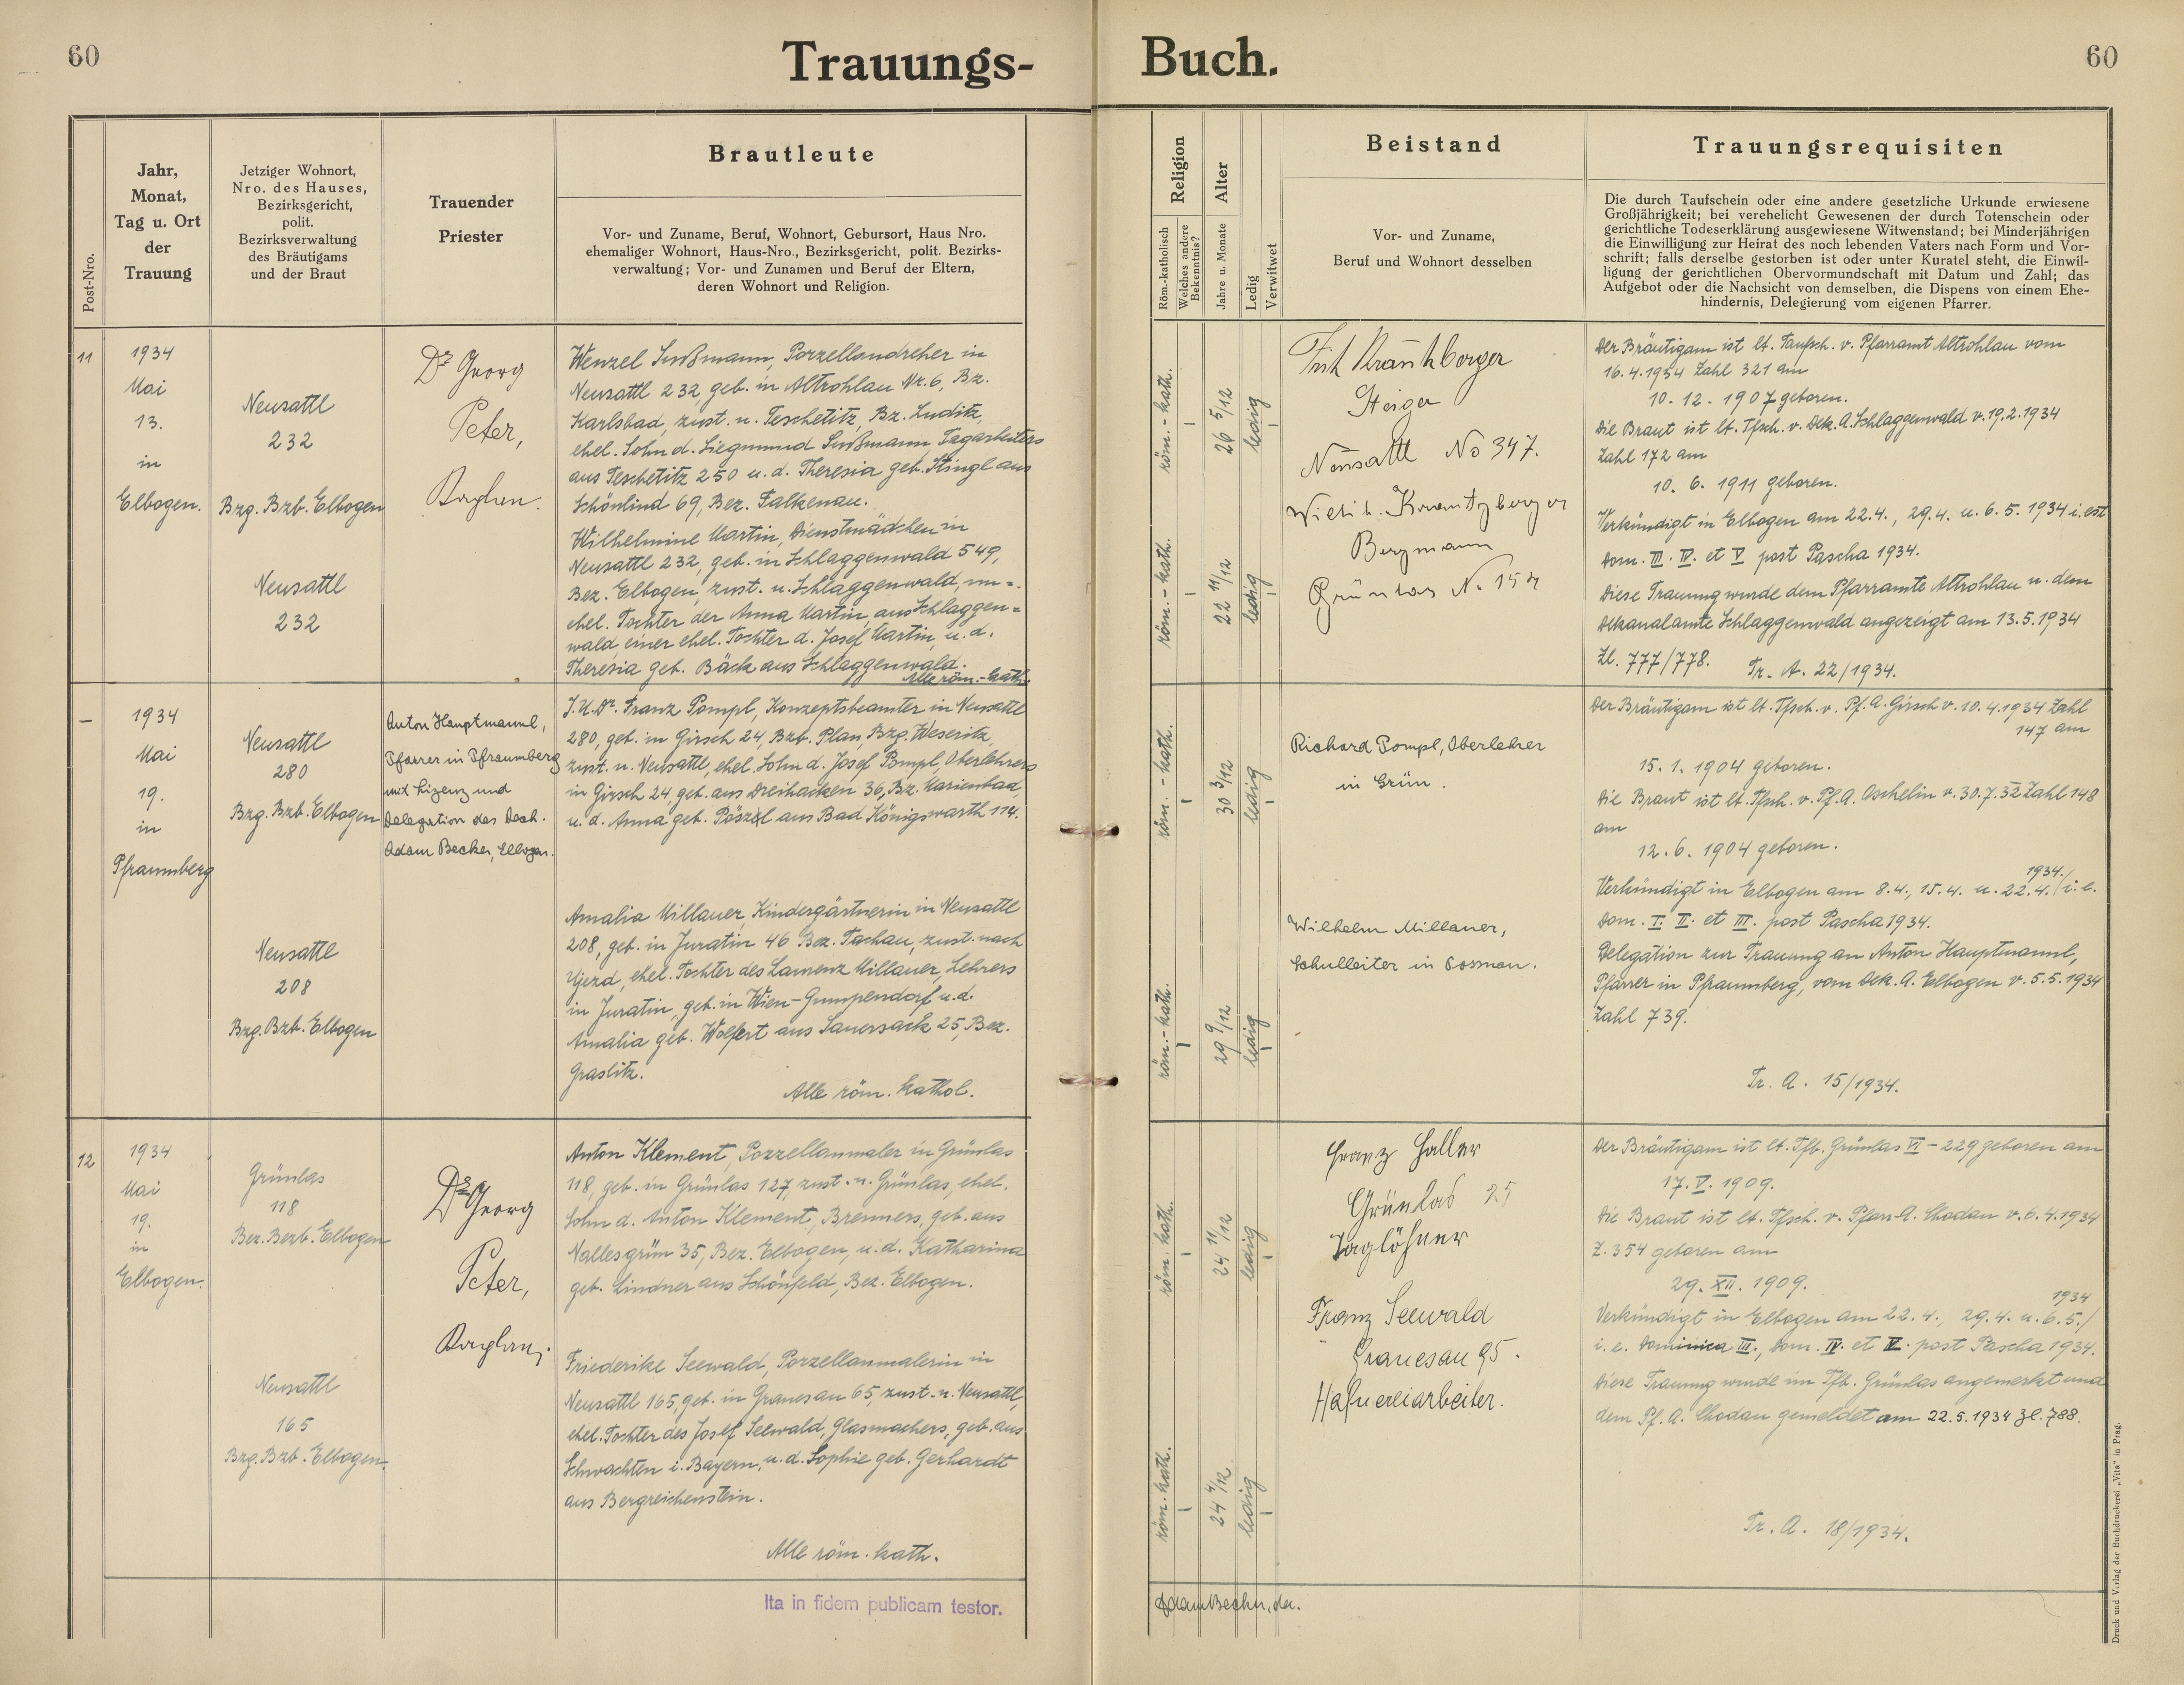 60
Trauungs-
Buch.
60
Post-Nro.
Jahr,
Monat,
Tag u. Ort
der
Trauung
Jetziger Wohnort,
Nro. des Hauses,
Bezirksgericht,
polit.
Bezirksverwaltung
des Bräutigams
und der Braut
Trauender
Priester
Brautleute
Vor- und Zuname, Beruf, Wohnort, Gebursort, Haus Nro.
ehemaliger Wohnort, Haus-Nro., Bezirksgericht, polit. Bezirks-
verwaltung; Vor- und Zunamen und Beruf der Eltern,
deren Wohnort und Religion.
Religion
Röm.-katholisch
Welches andere
Bekenntnis?
Alter
Jahre u. Monate
Ledig
Verwitwet
Beistand
Vor- und Zuname,
Beruf und Wohnort desselben
Trauungsrequisiten
Die durch Taufschein oder eine andere gesetzliche Urkunde erwiesene
Großjährigkeit; bei verehelicht Gewesenen der durch Totenschein oder
gerichtliche Todeserklärung ausgewiesene Witwenstand; bei Minderjährigen
die Einwilligung zur Heirat des noch lebenden Vaters nach Form und Vor-
schrift; falls derselbe gestorben ist oder unter Kuratel steht, die Einwil-
ligung der gerichtlichen Obervormundschaft mit Datum und Zahl; das
Aufgebot oder die Nachsicht von demselben, die Dispens von einem Ehe-
hindernis, Delegierung vom eigenen Pfarrer.
11
1934
Mai
13.
in
Elbogen.
Neusattl
232
Bzg. Bzb. Elbogen
Neusattl
232
Dr Georg
Peter,
Wenzel Sußmann, Porzellandreher in
Neusattl 232, geb. in Altrohlau Nr. 6, Bz.
Karlsbad, zust. n. Teschetitz, Bz. Luditz,
ehel. Sohn d. Siegmund Sußmann, Tagarbeiters
aus Teschetitz 250 u. d. Theresia geb. Stingl aus
Schönlind 69, Bez. Falkenau.
Wilhelmine Martin, Dienstmädchen in
Neusattl 232, geb. in Schlaggenwald 549,
Bez. Elbogen, zust. n. Schlaggenwald, un=
ehel. Tochter der Anna Martin, aus Schlaggen=
wald, einer ehel. Tochter d. Josef Martin, u. d.
Theresia geb. Bäck aus Schlaggenwald.
Alle röm.-kath.
röm.-kath.
26 5/12
ledig
röm.-kath.
22 11/12
ledig
Steiger
Neusattl No 347.
Krantzberger
Bergmann
Grünlas N. 157
Der Bräutigam ist lt. Taufsch. v. Pfarramt Altrohlau vom
16.4.1934 Zahl 321 am
10. 12. 1907 geboren.
Die Braut ist lt. Tfsch. v. Dek. A. Schlaggenwald v. 19.2.1934
Zahl 172 am
10. 6. 1911 geboren.
Verkündigt in Elbogen am 22.4., 29.4. u. 6.5. 1934 i. est
Dom. III. IV. et V post Pascha 1934.
Diese Trauung wurde dem Pfarramte Altrohlau u. dem
Dekanalamte Schlaggenwald angezeigt am 13.5.1934
Zl. 777/778. Tr. A. 22/1934.
–
1934
Mai
19.
in
Pfraumberg
Neusattl
280
Bzg. Bzb. Elbogen
Neusattl
208
Bzg. Bzb. Elbogen
Anton Hauptmannl,
Pfarrer in Pfraumberg
mit Lizenz und
Delegation des Dech.
Adam Becker, Elbogen.
J.U.Dr. Franz Pompl, Konzeptsbeamter in Neusattl
280, geb. in Girsch 24, Bzb. Plan, Bzg. Weseritz,
zust. n. Neusattl, ehel. Sohn d. Josef Pompl, Oberlehrers
in Girsch 24, geb. aus Dreihacken 36, Bz. Marienbad,
u. d. Anna geb. Pöszl aus Bad Königswarth 114.
Amalia Millauer, Kindergärtnerin in Neusattl
208, geb. in Juratin 46 Bez. Tachau, zust. nach
Ujezd, ehel. Tochter des Laurenz Millauer, Lehrers
in Juratin, geb. in Wien-Gumpendorf u. d.
Amalia geb. Wolfert aus Sauersack 25, Bez.
Graslitz.
Alle röm. kathol.
röm.-kath.
30 3/12
ledig
röm.-kath.
29 9/12
ledig
Richard Pompl, Oberlehrer
in Grün.
Wilhelm Millauer,
Schulleiter in Gosmaul.
Der Bräutigam ist lt. Tfsch. v. Pf. A. Girsch v. 10.4.1934 Zahl
147 am
15. 1. 1904 geboren.
Die Braut ist lt. Tfsch. v. Pf. A. Oschelin v. 30.7.32 Zahl 148
am
12. 6. 1904 geboren.
1934.
Verkündigt in Elbogen am 8.4., 15.4. u. 22.4./ i. e.
Dom. I. II. et III. post Pascha 1934.
Delegation zur Trauung an Anton Hauptmannl,
Pfarrer in Pfraumberg, vom Dek. A. Elbogen v. 5.5.1934
Zahl 739.
Tr. A. 15/1934.
12
1934
Mai
19.
in
Elbogen.
Grünlas
118
Bez. Bezb. Elbogen
Neusattl
165
Bzg. Bzb. Elbogen.
Dr Georg
Peter,
Anton Klement, Porzellanmaler in Grünlas
118, geb. in Grünlas 127, zust. n. Grünlas, ehel.
Sohn d. Anton Klement, Brenners, geb. aus
Nallesgrün 35, Bez. Elbogen, u. d. Katharina
geb. Lindner aus Schönfeld, Bez. Elbogen.
Friederike Seewald, Porzellanmalerin in
Neusattl 165, geb. in Granesau 65, zust. n. Neusattl,
ehel. Tochter des Josef Seewald, Glasmachers, geb. aus
Schwachten i. Bayern, u. d. Sophie geb. Gerhardt
aus Bergreichenstein.
Alle röm. kath.
röm. kath.
24 11/12
ledig
röm. kath.
24 4/12
ledig
Franz Haller
Grünlas 25
Taglöhner
Franz Seewald
Granesau 95.
Hafnereiarbeiter.
Der Bräutigam ist lt. Tfb. Grünlas VI - 229 geboren am
17. V. 1909.
Die Braut ist lt. Tfsch. v. Pfarr-A. Chodau v. 6.4.1934
Z. 354 geboren am
29. XII. 1909.
1934
Verkündigt in Elbogen am 22.4., 29.4. u. 6.5./
i. e. Dominica III., Dom. IV. et V. post Pascha 1934.
Diese Trauung wurde im Tfb. Grünlas angemerkt und
dem Pf. A. Chodau gemeldet am 22.5.1934 Zl. 788.
Tr. A. 18/1934.
Ita in fidem publicam testor.
Adam Becker,
Druck und Verlag der Buchdruckerei „Vita" in Prag.